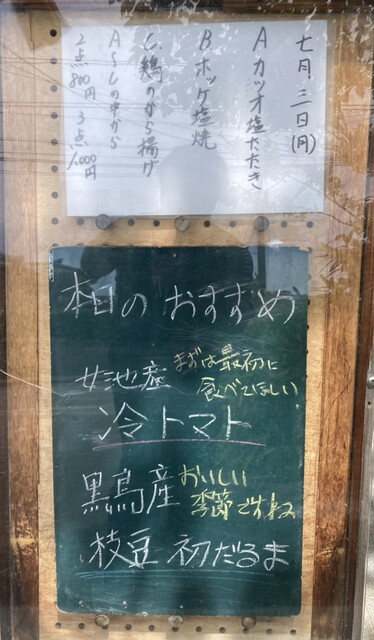 七月三日(月)
A カツオ塩たたき
B ホッケ塩焼
C 鶏のから揚げ
A〜Cの中から
2点800円 3点1,000円
本日のおすすめ
女池産 まずは最初に
食べてほしい
冷トマト
黒鳥産 おいしい
季節ですね
枝豆 初だるま